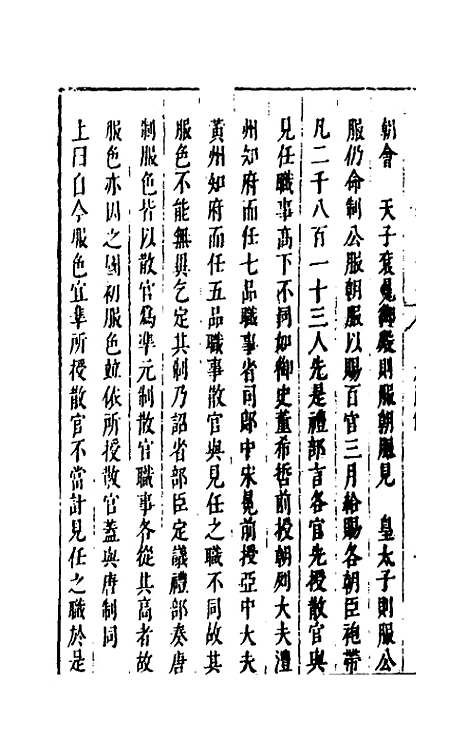 朝會　天子袞冕御殿則服朝服見　皇太子則服公
服仍命制公服朝服以賜百官三月給賜各朝臣袍帶
凡二千八百一十三人先是禮部言各官先授散官與
見任職事高下不同如御史董希哲前授朝列大夫澧
州知府而任七品職事省司郎中宋冕前授亞中大夫
黃州知府而任五品職事散官與見任之職不同故其
服色不能無異乞定其制乃詔省部臣定議禮部奏唐
制服色皆以散官爲準元制散官職事各從其高者故
服色亦因之國初服色竝依所授散官蓋與唐制同
上曰自今服色宜準所授散官不當計見任之職於是